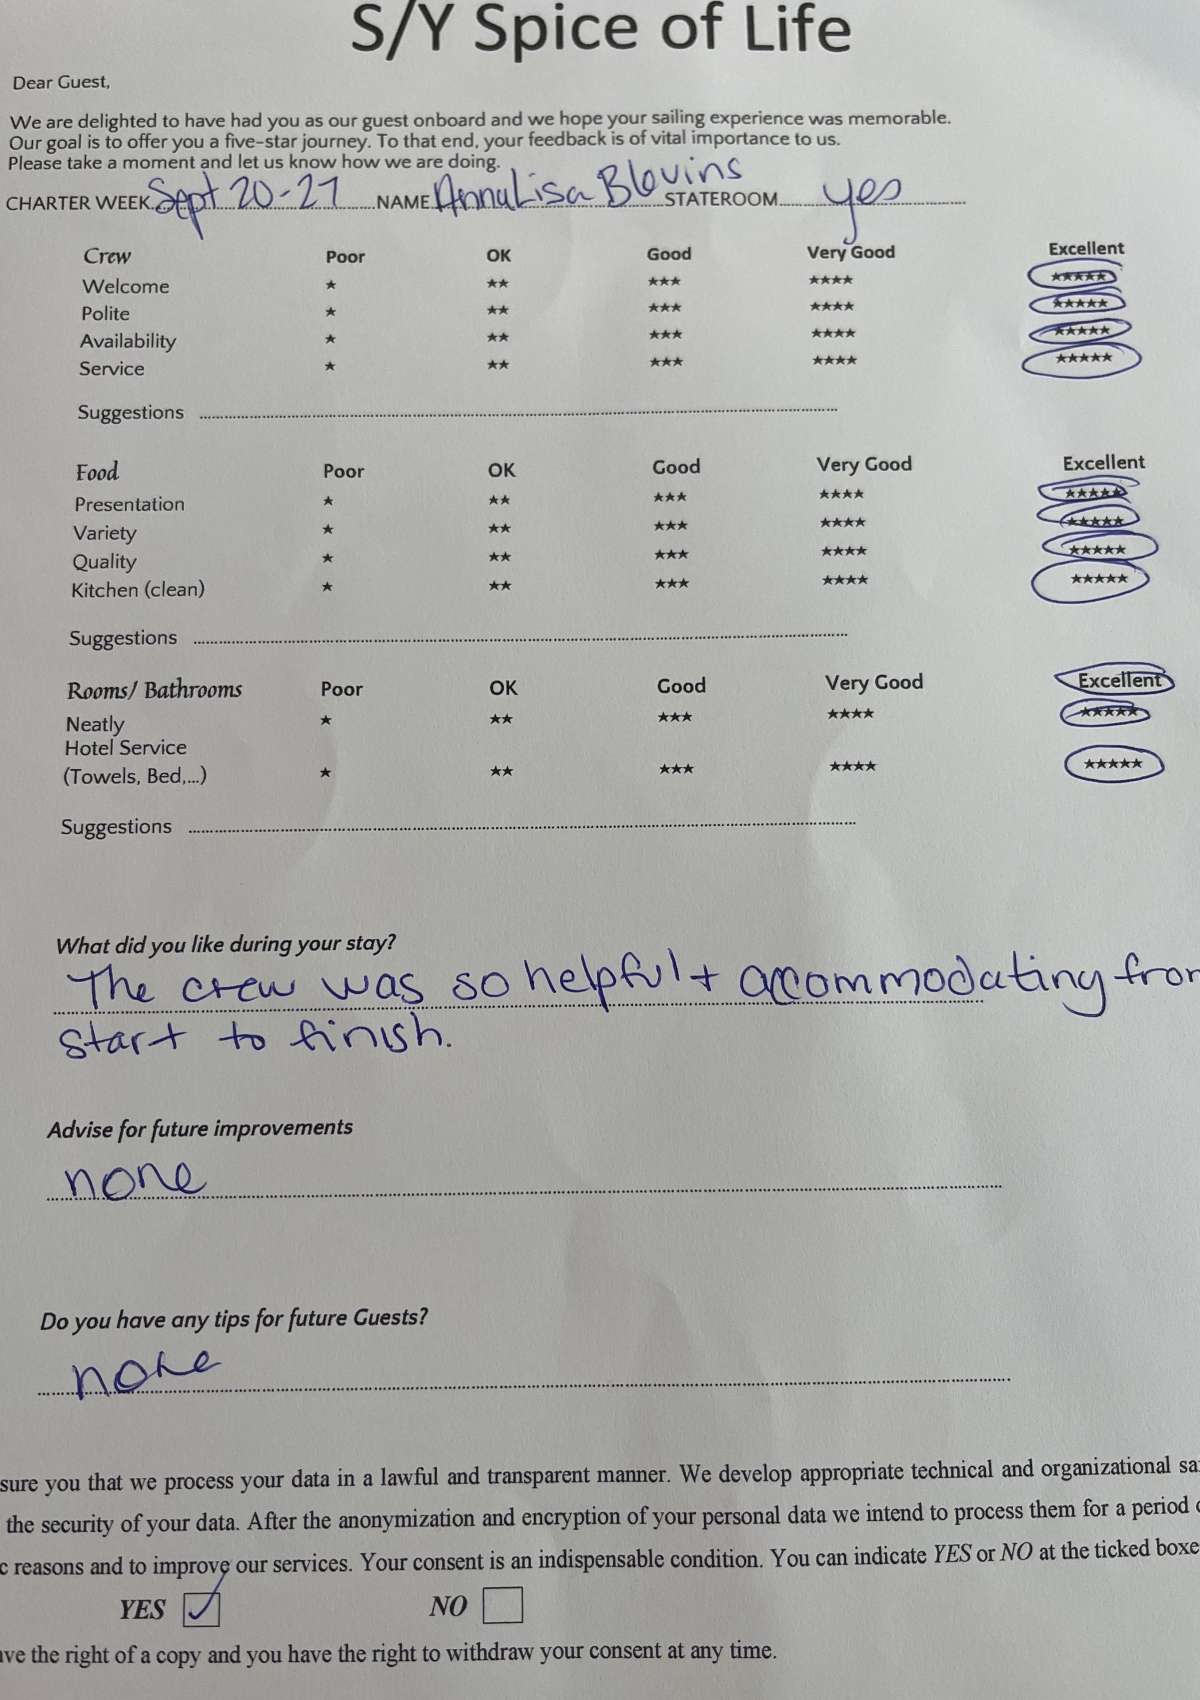 S/Y Spice of Life
Dear Guest,
We are delighted to have had you as our guest onboard and we hope your sailing experience was memorable.
Our goal is to offer you a five-star journey. To that end, your feedback is of vital importance to us.
Please take a moment and let us know how we are doing.
CHARTER WEEK Sept 20-27 NAME AnnaLisa Blevins STATEROOM yes
Crew Poor OK Good Very Good Excellent
Welcome ★ ★★ ★★★ ★★★★ ★★★★★
Polite ★ ★★ ★★★ ★★★★ ★★★★★
Availability ★ ★★ ★★★ ★★★★ ★★★★★
Service ★ ★★ ★★★ ★★★★ ★★★★★
Suggestions
Food Poor OK Good Very Good Excellent
Presentation ★ ★★ ★★★ ★★★★ ★★★★★
Variety ★ ★★ ★★★ ★★★★ ★★★★★
Quality ★ ★★ ★★★ ★★★★ ★★★★★
Kitchen (clean) ★ ★★ ★★★ ★★★★ ★★★★★
Suggestions
Rooms/ Bathrooms Poor OK Good Very Good Excellent
Neatly ★ ★★ ★★★ ★★★★ ★★★★★
Hotel Service
(Towels, Bed,...) ★ ★★ ★★★ ★★★★ ★★★★★
Suggestions
What did you like during your stay?
The crew was so helpful + accommodating from
start to finish.
Advise for future improvements
none
Do you have any tips for future Guests?
none
sure you that we process your data in a lawful and transparent manner. We develop appropriate technical and organizational
the security of your data. After the anonymization and encryption of your personal data we intend to process them for a period
c reasons and to improve our services. Your consent is an indispensable condition. You can indicate YES or NO at the ticked boxe
YES ✓ NO
ve the right of a copy and you have the right to withdraw your consent at any time.